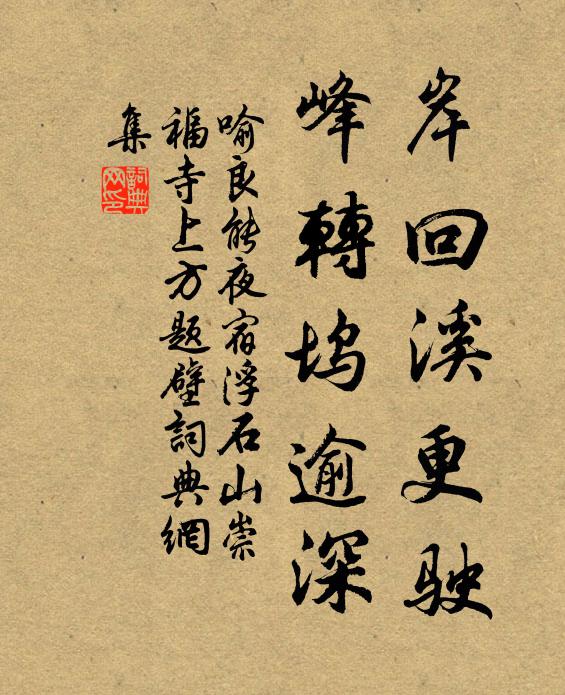 岸回溪更駛
峰轉塢逾深
喻良能夜宿浮石山崇
福寺上方題壁詞典網
集
詞典网印